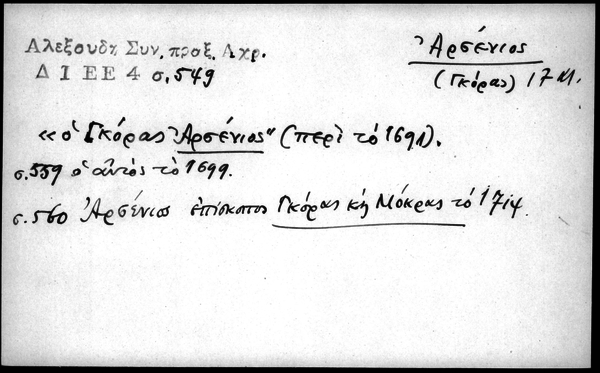 Αλεξουδη Συν. προξ. Αχρ.
Δ Ι ΕΕ 4 σ. 549
Ἀρσένιος
(Γκόρας) 17 αι.
«ὁ Γκόρας Ἀρσένιος" (περὶ τὸ 1691).
σ. 559 ὁ αὐτὸς τὸ 1699.
σ. 560 Ἀρσένιος ἐπίσκοπος Γκόρας κὴ Μόκρας τὸ 1714.